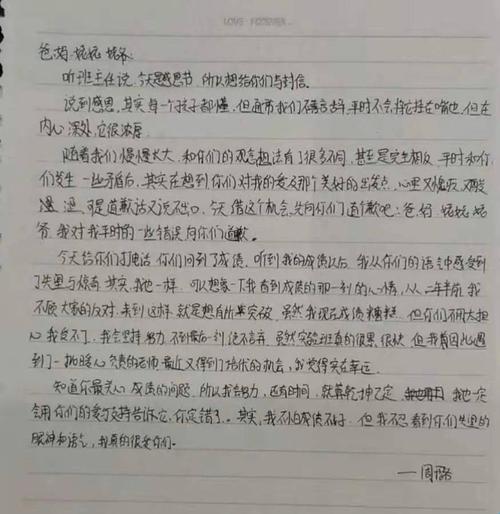 LOVE FOREVER
爸.妈.姥姥.姥爷:
听班主任说,今天是感恩节,所以想给你们写封信。
说到感恩,其实每一个孩子都懂,但通常我们不善言辞,平时不会将它挂在嘴边,但在
内心深处,它很浓厚。
随着我们慢慢长大,和你们的观念想法有了很多不同,甚至是完全相反,平时和你
们发生一些矛盾后,其实在想到你们对我的爱及那个美好的出发点,心里又愧疚,
可是道歉话又说不出口,今天借这个机会,先向你们道个歉吧:爸.妈.姥姥.姥
爷,我对我平时的一些错误向你们道歉。
今天给你们打电话,你们问到了成绩,听到我的成绩以后,我从你们的语气中感受到
了失望与惊奇,其实,我也一样,可以想象一下我看到成绩的那一刻的心情,从二年前我
不顾大家的反对,来到这样,就是想有所突破,虽然我现在成绩糟糕,但你们不用太担
心,我受不了,我会坚持努力,不到最后一刻绝不言弃,虽然实验班真的很累,很快,但我有因此遇
到了一批暖心负责的老师,最近又得到了培优的机会,我觉得实在幸运。
知道你最关心成绩的问题,所以我会努力,还有时间,就算乾坤已定,我也一定
会用你们的爱与支持告诉它,你定错了。其实,我不怕成绩不好,但我不忍看到你们失望的
眼神和语气,我真的很爱你们。
——周璐